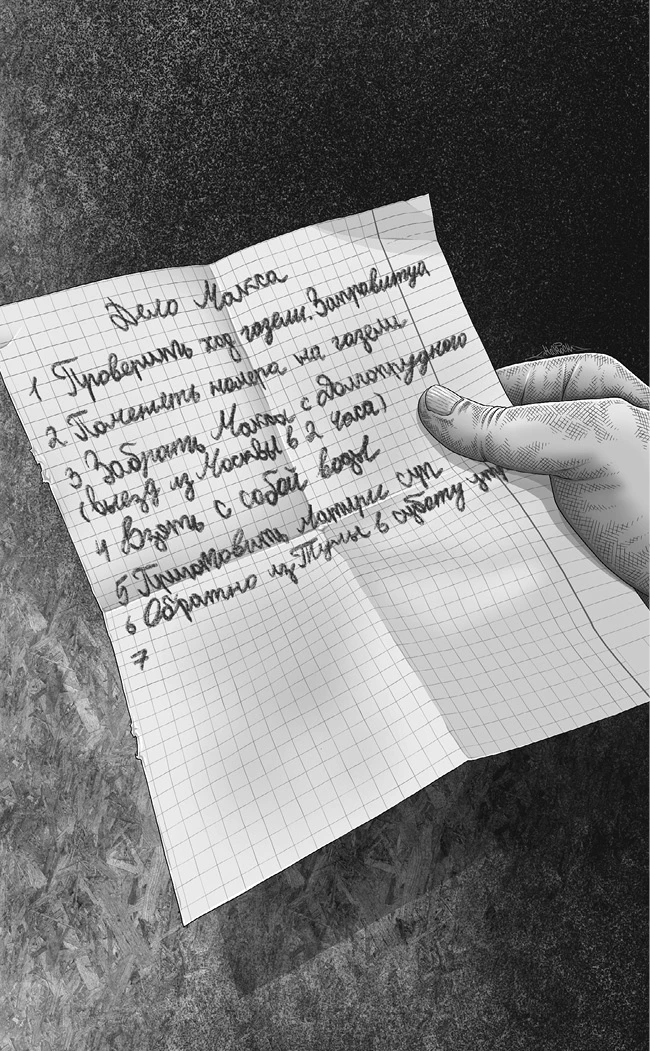 Дело Макса
1 Проверить ход газели. Заправитуа
2 Поменять номера на газели
3 Забрать Макса с Долгопрудного
(выезд из Москвы в 2 часа)
4 Взять с собой воды
5 Приготовить матури суп
6 Обратно из Тулы в субботу утр
7